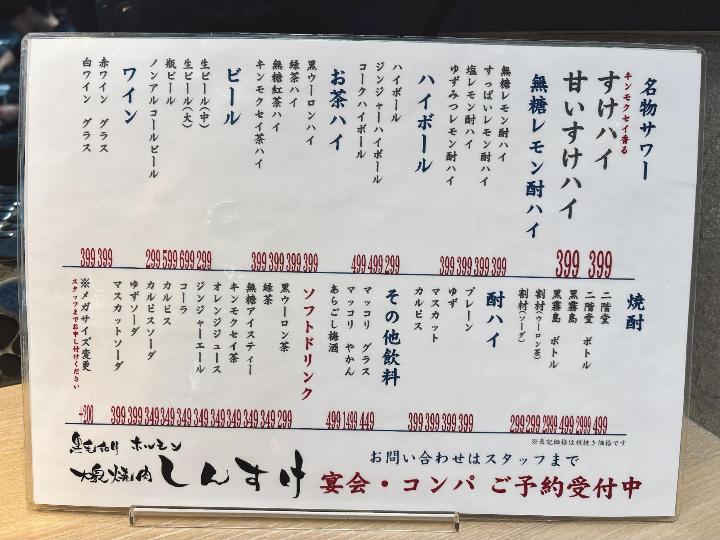 名物サワー
キンモクセイ香る
すけハイ
甘いすけハイ
399 399
無糖レモン酎ハイ
無糖レモン酎ハイ
すっぱいレモン酎ハイ
塩レモン酎ハイ
ゆずみつレモン酎ハイ
399 399 399 399
ハイボール
ハイボール
ジンジャーハイボール
コークハイボール
499 499 299
お茶ハイ
黒ウーロンハイ
緑茶ハイ
無糖紅茶ハイ
キンモクセイ茶ハイ
399 399 399 399
ビール
生ビール(中)
生ビール(大)
瓶ビール
ノンアルコールビール
299 599 699 299
ワイン
赤ワイン グラス
白ワイン グラス
399 399
焼酎
二階堂
二階堂 ボトル
黒霧島
黒霧島 ボトル
割材(ウーロン茶)
割材(ソーダ)
299 299 2999 499 2999 499
酎ハイ
プレーン
ゆず
マスカット
カルピス
399 399 399 399
その他飲料
マッコリ グラス
マッコリ やかん
あらごし梅酒
499 1499 449
ソフトドリンク
黒ウーロン茶
緑茶
無糖アイスティー
キンモクセイ茶
オレンジジュース
ジンジャーエール
コーラ
カルピス
カルピスソーダ
ゆずソーダ
マスカットソーダ
399 399 349 349 349 349 349 349 349 349 299
※メガサイズ変更
スタッフまでお申し付けください
+300
※表記価格は税抜き価格です
黒毛和牛 ホルモン
大衆焼肉 しんすけ
お問い合わせはスタッフまで
宴会・コンパ ご予約受付中